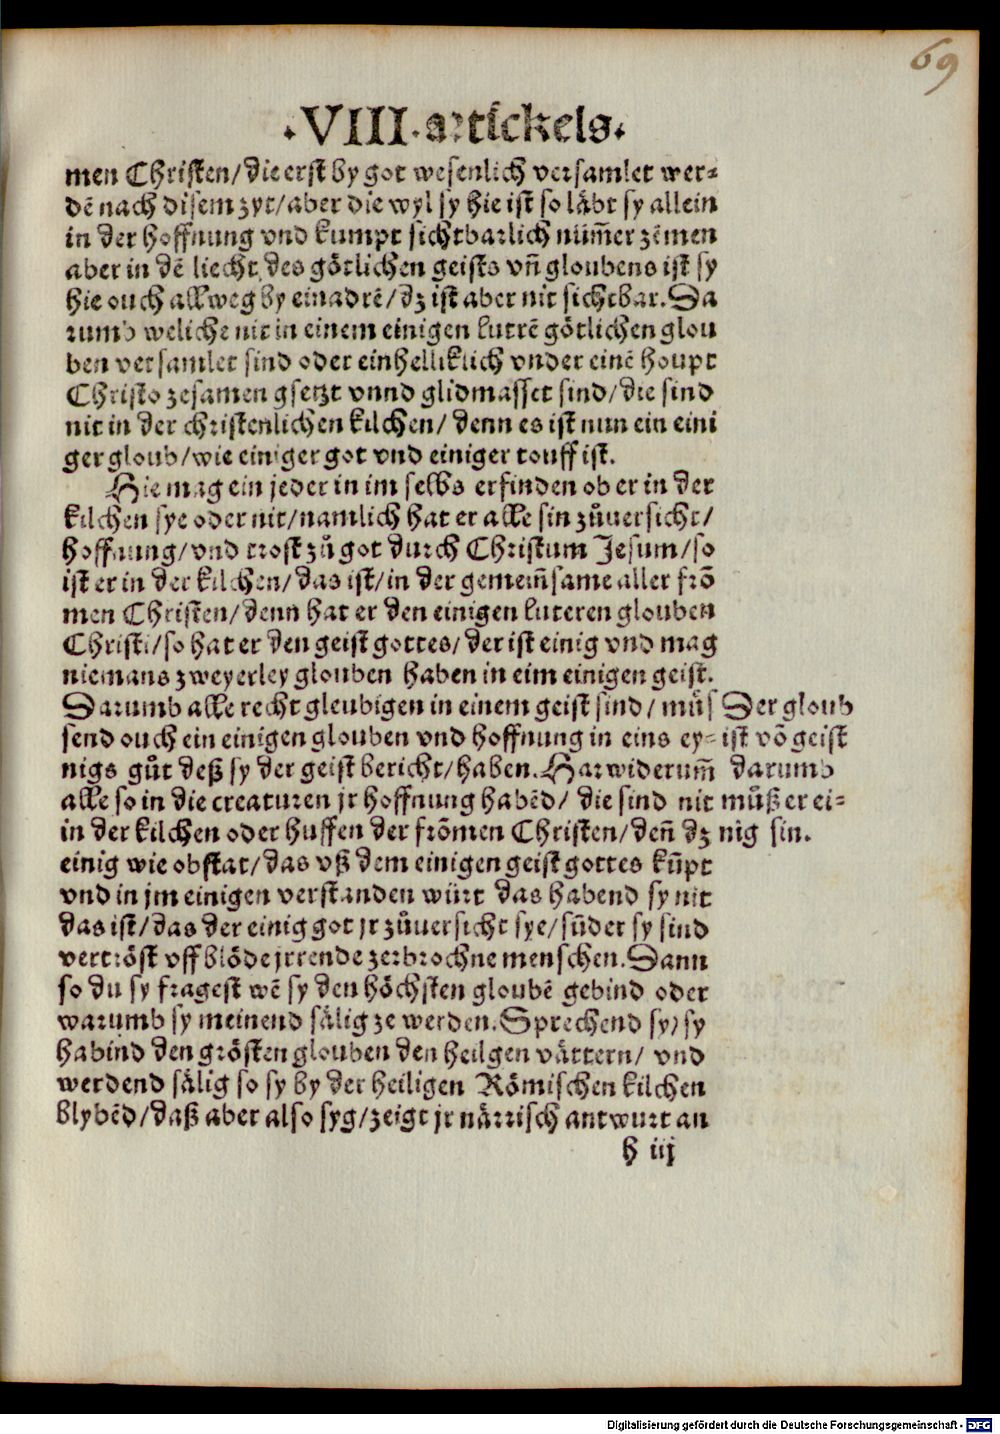 69
.VIII.artickels.
men Christen/die erst by got wesenlich versamlet wer=
dē nach disem zyt/aber die wyl sy hie ist so läbt sy allein
in der hoffnung vnd kumpt sichtbarlich nüm̄er zēmen
aber in dē liecht des götlichen geists vn̄ gloubens ist sy
hie ouch allweg by einadrē/dz ist aber nit sichtbar. Da
rumb weliche nit in einem einigen lutrē götlichen glou
ben versamlet sind oder einhelliklich vnder einē houpt
Christo zesamen gsetzt vnnd glidmasset sind/die sind
nit in der christenlichen kilchen/denn es ist nun ein eini
ger gloub/wie einiger got vnd einiger touff ist.
Hie mag ein jeder in im selbs erfinden ob er in der
kilchen sye oder nit/namlich hat er alle sin zůuersicht/
hoffnung/vnd trost zů got durch Christum Jesum/so
ist er in der kilchen/das ist/in der gemein̄same aller frō
men Christen/denn hat er den einigen luteren glouben
Christi/so hat er den geist gottes/der ist einig vnd mag
niemans zweyerley glouben haben in eim einigen geist.
Darumb alle recht gleubigen in einem geist sind/müs
send ouch ein einigen glouben vnd hoffnung in eins ey=
nigs gůt deß sy der geist bericht/haben. Harwiderum̄
alle so in die creaturen jr hoffnung habēd/die sind nit
in der kilchen oder huffen der frōmen Christen/den̄ dz
einig wie obstat/das vß dem einigen geist gottes kūpt
vnd in jm einigen verstanden würt das habend sy nit
das ist/das der einig got jr zůuersicht sye/sūder sy sind
vertröst vff blöde jrrende zerbrochne menschen. Dann
so du sy fragest wē sy den höchsten gloubē gebind oder
warumb sy meinend sälig ze werden. Sprechend sy/sy
habind den grösten glouben den heilgen vättern/ vnd
werdend sälig so sy by der heiligen Römischen kilchen
blybēd/daß aber also syg/zeigt jr närrisch antwurt an
h iij
Der gloub
ist vō geist
darumb
můß er ei=
nig sin.
Digitalisierung gefördert durch die Deutsche Forschungsgemeinschaft - DFG